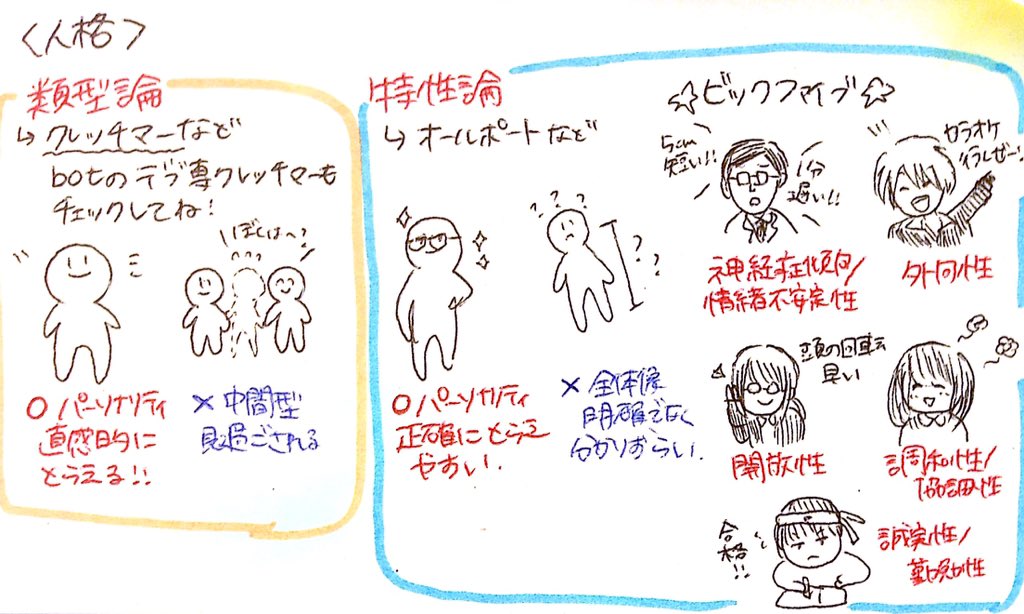 〈人格〉
類型論
↳ クレッチマーなど
botのデブ専クレッチマーも
チェックしてね!
ぼくは〜?
○パーソナリティ
直感的に
とらえる!!
×中間型
見過ごされる
特性論
↳ オールポートなど
? ? ?
? ? ?
○パーソナリティ
正確にとらえ
やすい.
×全体像
明確でなく
分かりずらい.
☆ビックファイブ☆
5cm
短い!!
1分
遅い!!
神経症傾向/
情緒不安定性
カラオケ
外向性
頭の回転
早い
開放性
調和性/
協調性
合格!!
誠実性/
勤勉性